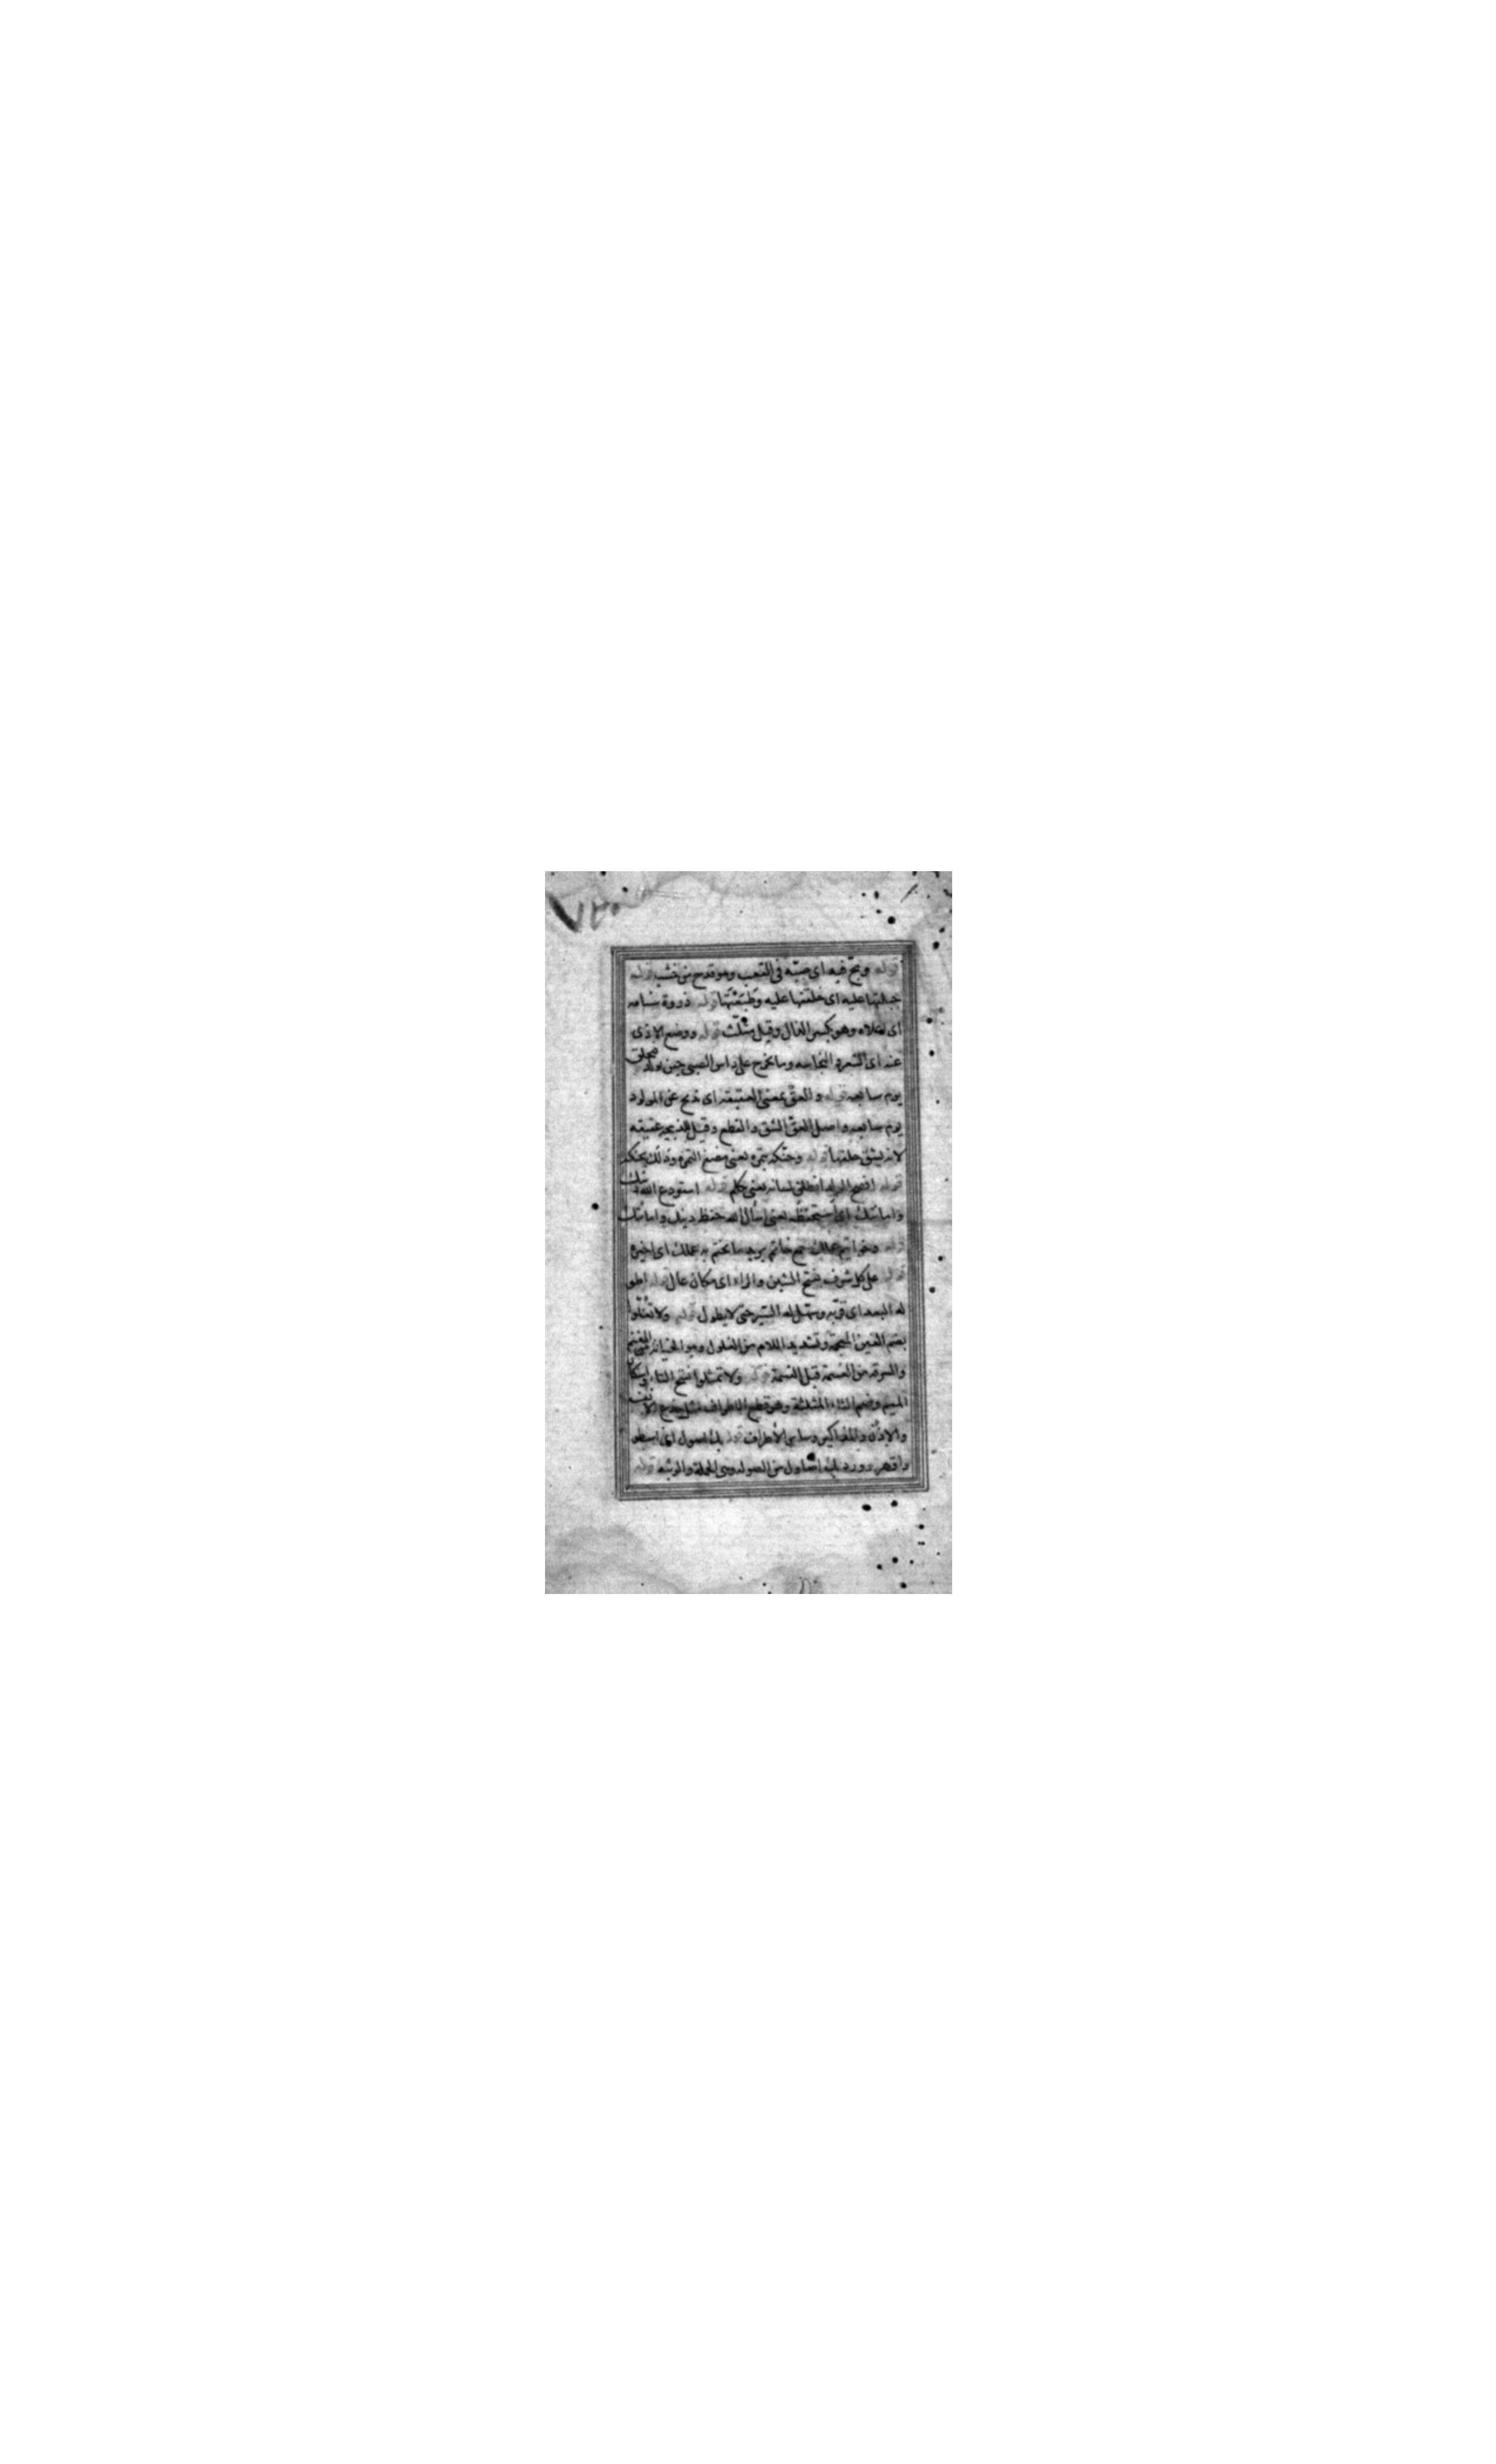 قوله ومج فيه اى صبّه فى القعب وهو قدح من خشب قوله
جبلتها عليه اى خلقتها عليه وطبعتها قوله ذروة سنامه
اى اعلاه وهو بكسر الذال وقيل مثلّث قوله ووضع الاذى
عنه اى الشعر والنجاسه وما يخرج على راس الصبى حين يولد فيحلق
يوم سابعه قوله والعقّ بمعنى العقيقه اى ذبح عن المولود
يوم سابعه واصل العقّ الشق والقطع وقيل للذبيحه عقيقه
لانه يشق حلقها قوله وحنكه بتمره يعنى مضغ التمره ودلك بحنكه
قوله افصح الولد انطلق لسانه يعنى تكلم قوله استودع الله دينك
وامانتك اى استحفظه يعنى اسأل الله حفظ دينك وامانتك
قوله وخواتيم عملك جمع خاتم يريد ما يختم به عملك اى اخيره
قوله على كل شرف بفتح الشين والراء اى مكان عال قوله اطو
له البعد اى قرّبه وسهّل له السير حتى لا يطول قوله ولا تغلّوا
بضم الغين المعجمة وتشديد اللام من الغلول وهو الخيانة فى المغنم
والسرقه من الغنيمة قبل القسمة قوله ولا تمثلوا بفتح التاء واسكان
الميم وضم الثاء المثلثة وهو قطع الاطراف مثل جدع الانف
والاذن والمذاكير وسائر الأطراف قوله بك اصول اى اسطو
واقهر وورد بك اصاول من الصولة وهى الحملة والوثبه قوله